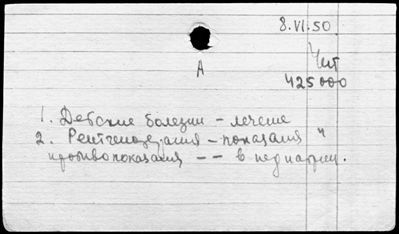 8.VI.50.
Чит
А
425000
1. Детские болезни – лечение
2. Рентгенотерапия – показания и
противопоказания – – в педиатрии.